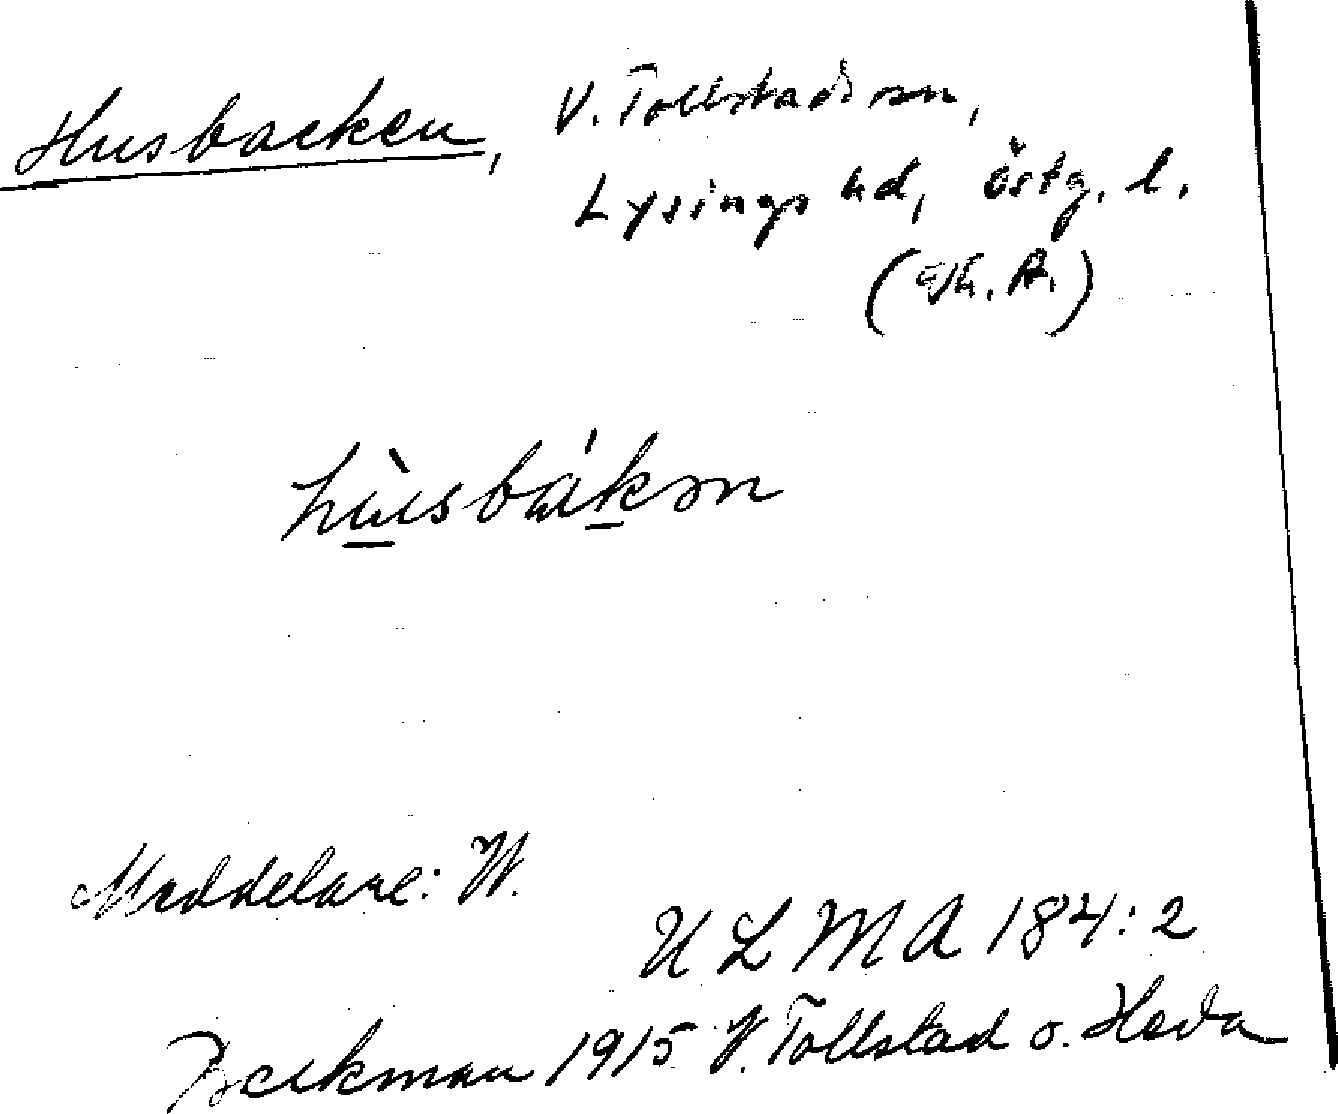 Husbacken, V. Tollstad sn,
Lysings hd, Östg. l.
(Gh. A.)
hùsbákən
Meddelare: W.
ULMA 184:2
Beckman 1915 V. Tollstad o. Heda